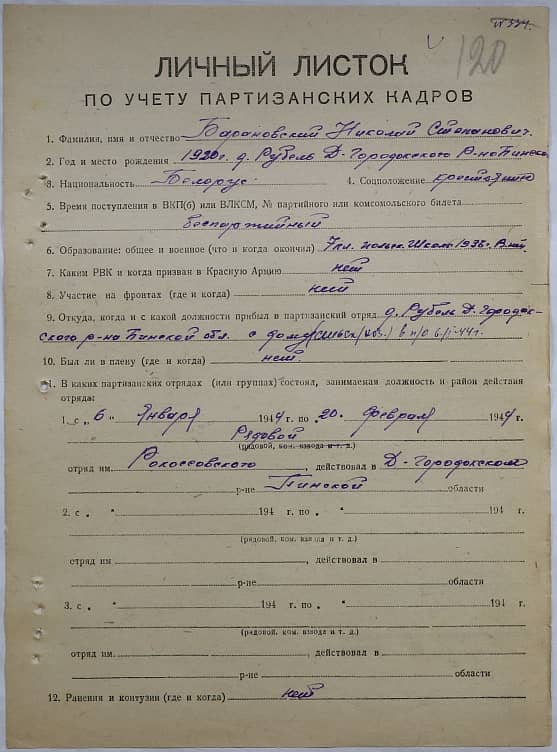 120
ЛИЧНЫЙ ЛИСТОК
ПО УЧЕТУ ПАРТИЗАНСКИХ КАДРОВ
1. Фамилия, имя и отчество Барановский Николай Степанович.
2. Год и место рождения 1920 г. д. Рубель Д-Городокского р-на Пинско
3. Национальность Белорус. 4. Соцположение крестьянин
5. Время поступления в ВКП(б) или ВЛКСМ, № партийного или комсомольского билета
беспартийный
6. Образование: общее и военное (что и когда окончил) 7 кл. польск. школ 1936 г.
7. Каким РВК и когда призван в Красную Армию нет
8. Участие на фронтах (где и когда) нет
9. Откуда, когда и с какой должности прибыл в партизанский отряд д. Рубель Д. Городок-
ского р-на Пинской обл. с дому в п/о 6/I-44 г.
10. Был ли в плену (где и когда) нет.
1. В каких партизанских отрядах (или группах) состоял, занимаемая должность и район действия
отряда:
1. с „ 6 " Января 1944 г. по „ 20. " февраля 1944 г.
Рядовой
(рядовой, ком. взвода и т. д.)
отряд им. Рокоссовского, действовал в Д-Городокском
р-не Пинской области
2. с „ " 194 г. по „ " 194 г.
(рядовой, ком. взвода и т. д.)
отряд им , действовал в
р-не области
3. с „ " 194 г. по „ " 194 г.
(рядовой, ком. взвода и т. д.)
отряд им. , действовал в
р-не области
12. Ранения и контузии (где и когда) нет